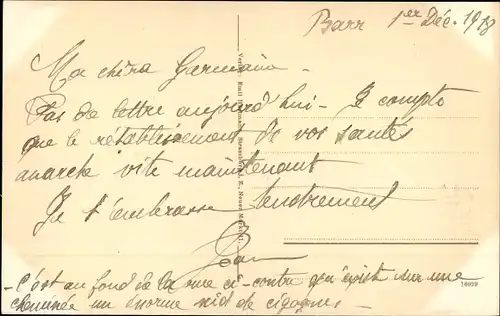 Barr 1er Déc. 1918
Ma chère Germaine.
Pas de lettre aujourd'hui - Je compte
que le rétablissement de vos santés
marche vite maintenant
Je t'embrasse tendrement
Jean
- C'est au fond de la rue ci-contre qu'existe sur une
cheminée un énorme nid de cigognes -
18929